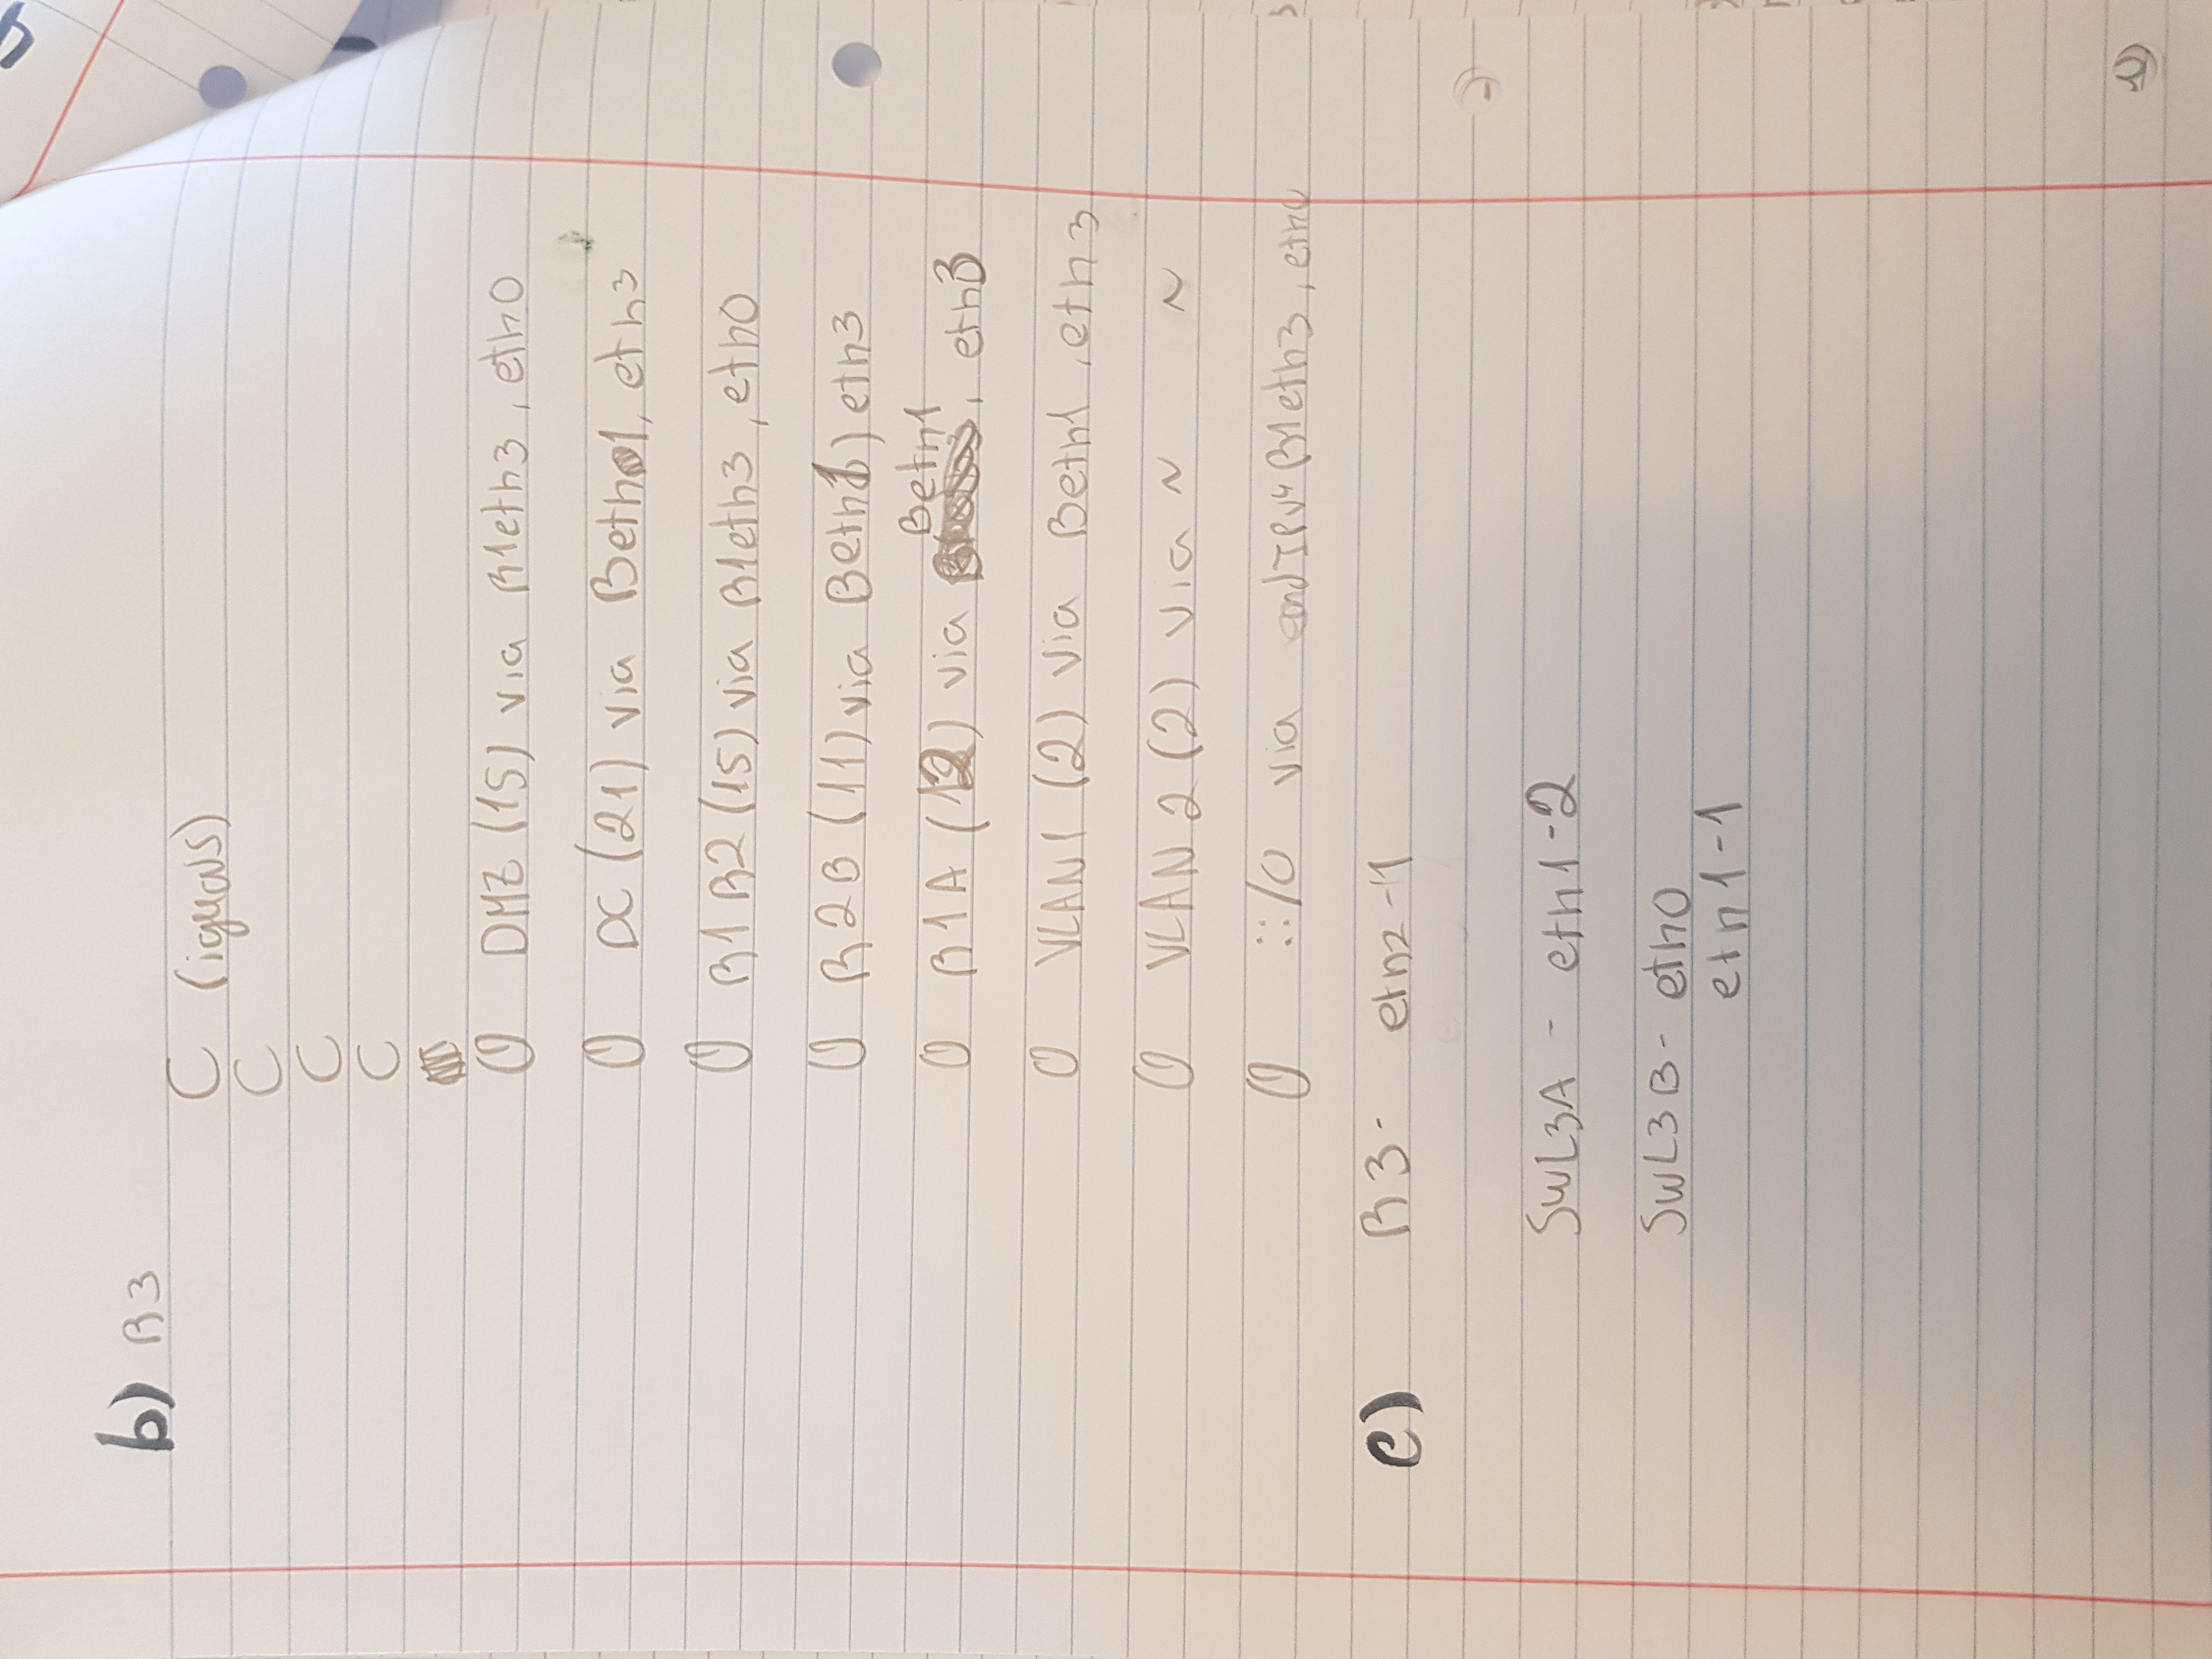 b) R3
C (iguais)
C
C
C
O DMZ (15) via R1eth3, eth0
O DC (21) via Beth1, eth3
O R1R2 (15) via R1eth3, eth0
O R2B (11) via Beth1, eth3
O R1A (12) via Beth1, eth3
O VLAN1 (2) via Beth1, eth3
O VLAN2 (2) via ~ ~
O ::/0 via endIPv4 R1eth3, eth0
c) R3- eth2-1
SWL3A - eth1-2
SWL3B- eth0
eth1-1